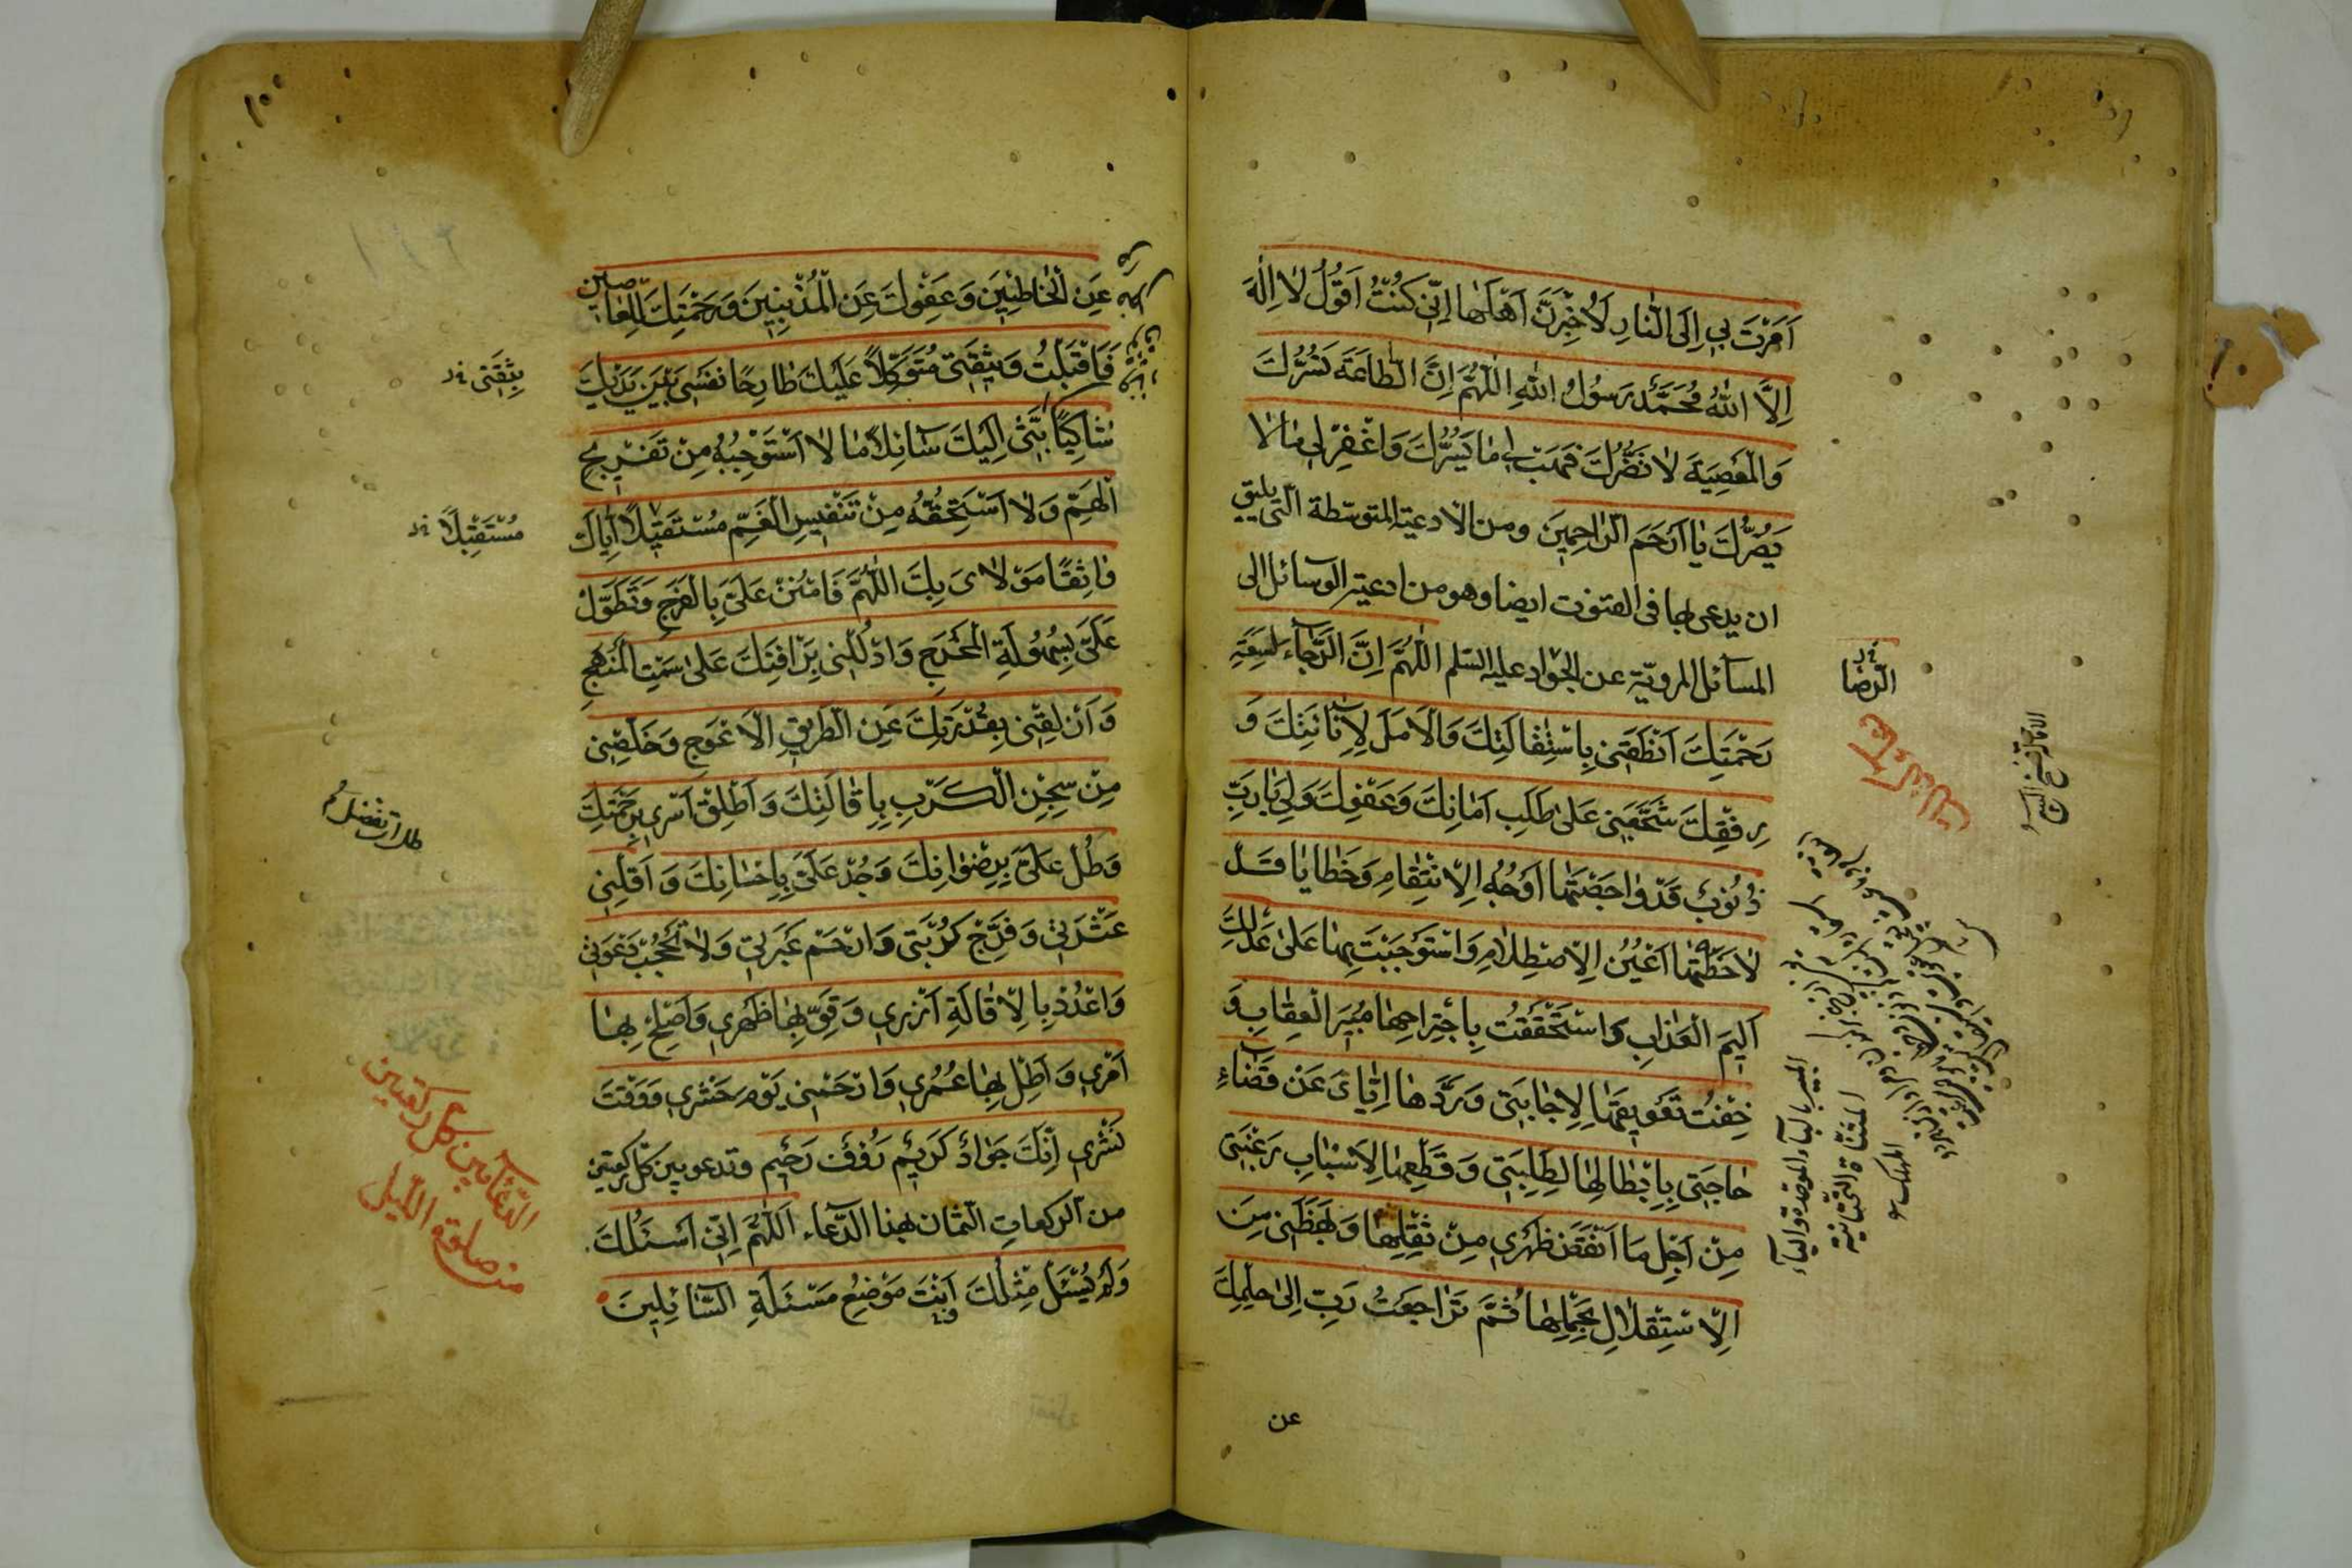 اَمَرْتَ بي اِلَى النّارِ لَاُخْبِرَنَّ اَهْلَها اِنّي كُنْتُ اَقُولُ لا اِلٰهَ
اِلَّا اللهُ مُحَمَّدٌ رَسُولُ اللهِ اللّٰهُمَّ اِنَّ الطّاعَةَ تَسُرُّكَ
وَالْمَعْصِيَةَ لا تَضُرُّكَ فَهَبْ لي ما يَسُرُّكَ وَاغْفِرْ لي ما لا
يَضُرُّكَ يا اَرْحَمَ الرّاحِمينَ ومن الادعية المتوسّطة الّتي يليق
ان يدعى بها في القنوت ايضا وهو من ادعية الوسائل الى
المسائل المرويّة عن الجواد عليه السّلم اللّٰهُمَّ اِنَّ الرَّجاءَ لِسَعَةِ
رَحْمَتِكَ اَنْطَقَني بِاسْتِقالَتِكَ وَالْاَمَلَ لِاَناتِكَ وَ
رِفْقِكَ شَجَّعَني عَلى طَلَبِ اَمانِكَ وَعَفْوِكَ وَلي يا رَبِّ
ذُنُوبٌ قَدْ واجَهَتْها اَوْجُهُ الْاِنْتِقامِ وَخَطايا قَدْ
لاحَظَتْها اَعْيُنُ الْاِصْطِلامِ وَاسْتَوْجَبْتُ بِها عَلى عَدْلِكَ
اَليمَ الْعَذابِ وَاسْتَحْقَقْتُ بِاجْتِراحِها مُبيرَ الْعِقابِ وَ
خِفْتُ تَعْويقَها لِاِجابَتي وَرَدَّها اِيّايَ عَنْ قَضاءِ
حاجَتي بِاِبْطالِها لِطَلِبَتي وَقَطْعِها لِاَسْبابِ رَغْبَتي
مِنْ اَجْلِ ما اَنْقَضَ ظَهْري مِنْ ثِقْلِها وَبَهَظَني مِنَ
الْاِسْتِقْلالِ بِحَمْلِها ثُمَّ تَراجَعْتُ رَبِّ اِلى حِلْمِكَ
عن
الرّضا
المبير بالبآء الموحدة واليآء
المثنّاة التّحتانيّة
المهلك
١٠٠
عَنِ الْخاطِئينَ وَعَفْوِكَ عَنِ الْمُذْنِبينَ وَرَحْمَتِكَ لِلْعاصينَ
فَاَقْبَلْتُ وَبِثِقَتي مُتَوَكِّلاً عَلَيْكَ طارِحًا نَفْسي بَيْنَ يَدَيْكَ
شاكِيًا بَثّي اِلَيْكَ سائِلاً ما لا اَسْتَوْجِبُهُ مِنْ تَفْريجِ
الْهَمِّ وَلا اَسْتَحِقُّهُ مِنْ تَنْفيسِ الْغَمِّ مُسْتَقيلاً اِيّاكَ
واثِقًا مَوْلايَ بِكَ اللّٰهُمَّ فَامْنُنْ عَلَيَّ بِالْفَرَجِ وَتَطَوَّلْ
عَلَيَّ بِسُهُولَةِ الْمَخْرَجِ وَادْلُلْني بِرَأْفَتِكَ عَلى سَمْتِ الْمَنْهَجِ
وَاَزْلِقْني بِقُدْرَتِكَ عَنِ الطَّريقِ الْاَعْوَجِ وَخَلِّصْني
مِنْ سِجْنِ الْكَرْبِ بِاِقالَتِكَ وَاَطْلِقْ اَسْري بِرَحْمَتِكَ
وَطُلْ عَلَيَّ بِرِضْوانِكَ وَجُدْ عَلَيَّ بِاِحْسانِكَ وَاَقِلْني
عَثْرَتي وَفَرِّجْ كُرْبَتي وَارْحَمْ عَبْرَتي وَلا تَحْجُبْ دَعْوَتي
وَاشْدُدْ بِالْاِقالَةِ اَزْري وَقَوِّ بِها ظَهْري وَاَصْلِحْ بِها
اَمْري وَاَطِلْ بِها عُمْري وَارْحَمْني يَوْمَ حَشْري وَوَقْتَ
نَشْري اِنَّكَ جَوادٌ كَريمٌ رَؤُفٌ رَحيمٌ وتدعو بين كلّ ركعتين
من الرّكعات الثّمان بهذا الدّعاء اَللّٰهُمَّ اِنّي اَسْئَلُكَ
وَلَمْ يُسْئَلْ مِثْلُكَ اَنْتَ مَوْضِعُ مَسْئَلَةِ السّائِلينَ
بِثِقَتي
مُسْتَقْبِلاً
الدّعآء بين كلّ ركعتين
من صلوة اللّيل